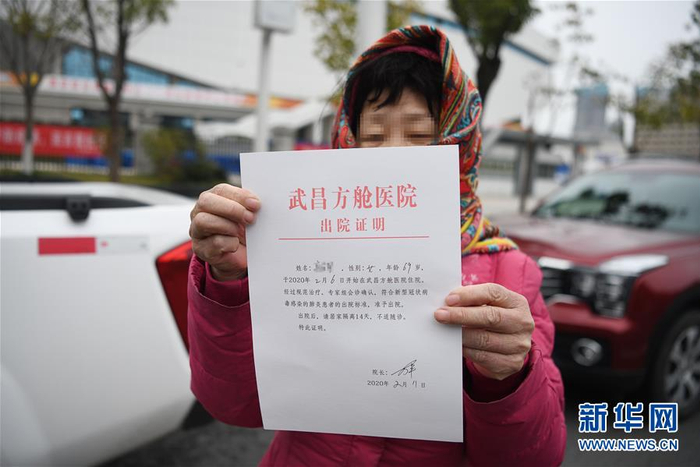 武昌方舱医院
出院证明
姓名： ，性别：女，年龄 69 岁，
于2020年2月6日开始在武昌方舱医院住院，
经过规范治疗，专家组会诊确认，符合新型冠状病
毒感染的肺炎患者的出院标准，准予出院。
出院后，请居家隔离14天，不适随诊。
特此证明。
院长：
2020年2月 日
新华网
WWW.NEWS.CN